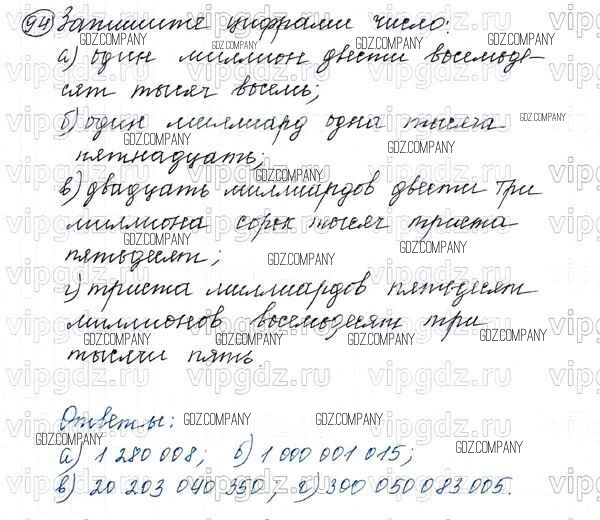 94 Запишите цифрами число:
а) один миллион двести восемьде-
сят тысяч восемь;
б) один миллиард одна тысяча
пятнадцать;
в) двадцать миллиардов двести три
миллиона сорок тысяч триста
пятьдесят;
г) триста миллиардов пятьдесят
миллионов восемьдесят три
тысячи пять.
Ответы:
а) 1 280 008; б) 1 000 001 015;
в) 20 203 040 350; г) 300 050 083 005.